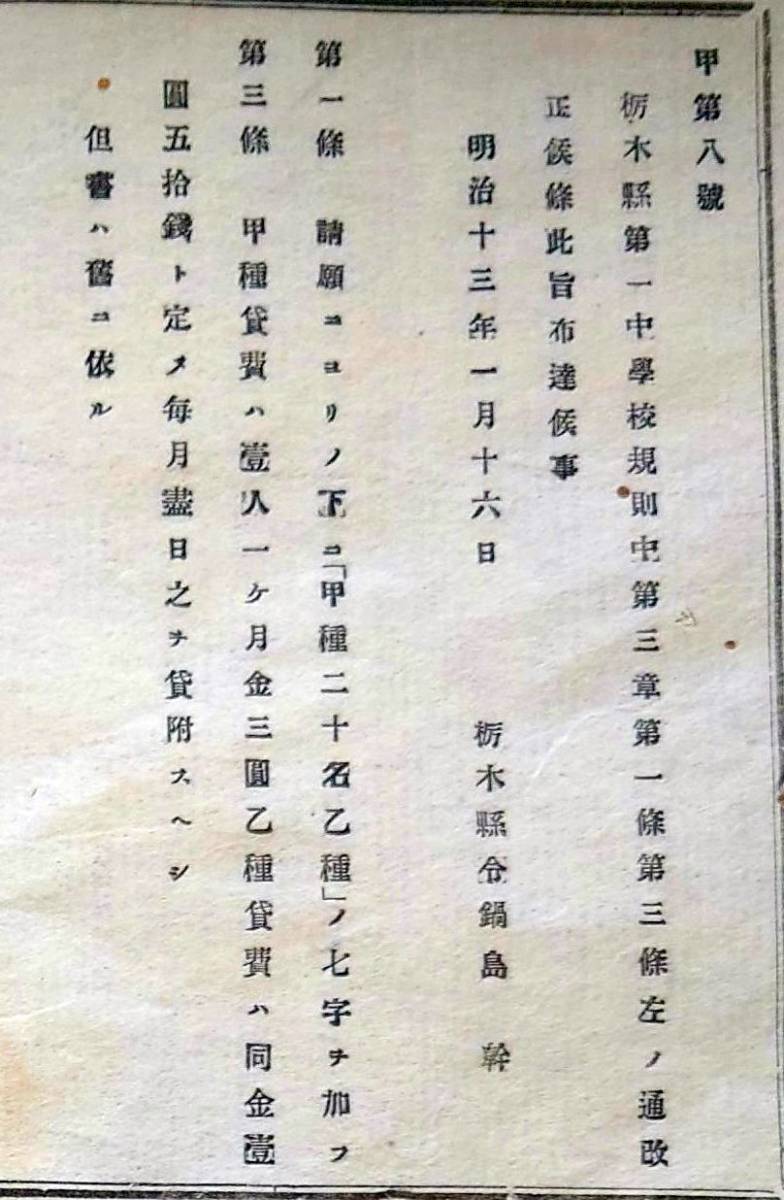 甲第八號
栃木縣第一中學校規則中第三章第一條第三條左ノ通改
正候條此旨布達候事
明治十三年一月十六日　栃木縣令鍋島　幹
第一條　請願ニヨリノ下ニ「甲種二十名乙種」ノ七字ヲ加フ
第三條　甲種貸費ハ壹人一ケ月金三圓乙種貸費ハ同金壹
圓五拾錢ト定メ每月盡日之ヲ貸附スヘシ
但書ハ舊ニ依ル